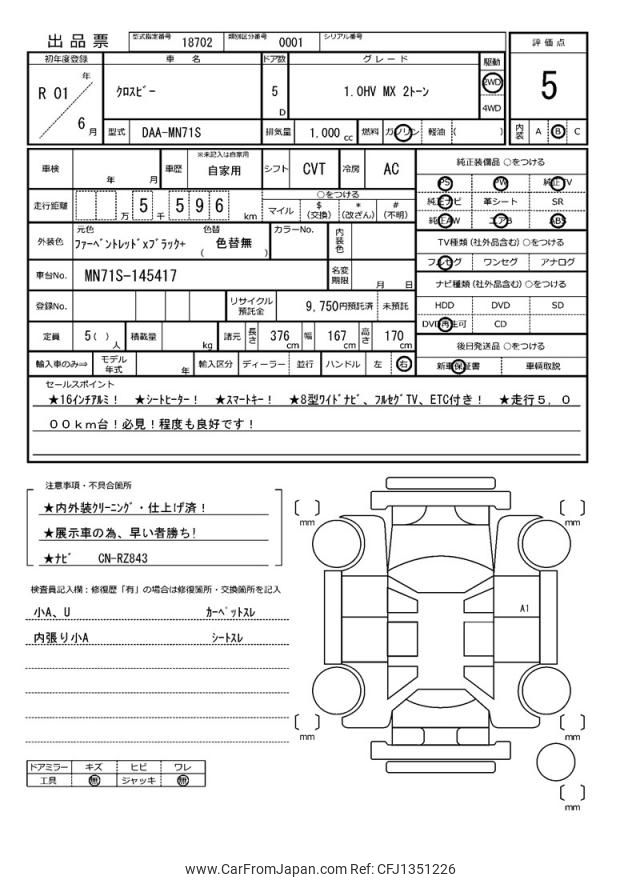 出品票 型式指定番号 18702 類別区分番号 0001 シリアル番号
評価点
5
内装 A B C
初年度登録 車名 ドア数 グレード 駆動
R 01 年 6 月
クロスビー 5 D 1.0HV MX 2トーン 2WD 4WD
型式 DAA-MN71S 排気量 1.000 cc 燃料 ガソリン 軽油 ( )
車検 年 月 車歴 ※未記入は自家用 自家用 シフト CVT 冷房 AC
走行距離 万 5 千 5 9 6 km
○をつける
マイル $ (交換) * (改ざん) # (不明)
外装色 元色 ファーベントレッドxブラック+ 色替 ( 色替無 ) カラーNo. 内装色
車台No. MN71S-145417 名変期限 月 日
登録No. リサイクル預託金 9,750円預託済 未預託
定員 5( ) 人 積載量 kg 諸元 長さ 376 cm 幅 167 cm 高さ 170 cm
輸入車のみ⇒ モデル年式 年 輸入区分 ディーラー 並行 ハンドル 左 右
純正装備品 ○をつける
PS PW 純正TV
純正ナビ 革シート SR
純正AW エアB ABS
TV種類 (社外品含む) ○をつける
フルセグ ワンセグ アナログ
ナビ種類 (社外品含む) ○をつける
HDD DVD SD
DVD再生可 CD
後日発送品 ○をつける
新車保証書 車輌取説
セールスポイント
★16インチアルミ! ★シートヒーター! ★スマートキー! ★8型ワイドナビ、フルセグTV、ETC付き! ★走行5,0
00km台!必見!程度も良好です!
注意事項・不具合箇所
★内外装クリーニング・仕上げ済!
★展示車の為、早い者勝ち!
★ナビ CN-RZ843
検査員記入欄:修復歴「有」の場合は修復箇所・交換箇所を記入
小A、U カーペットスレ
内張り小A シートスレ
ドアミラー キズ ヒビ ワレ
工具 無 ジャッキ 無
mm
mm
A1
mm
mm
mm
www.CarFromJapan.com Ref: CFJ1351226